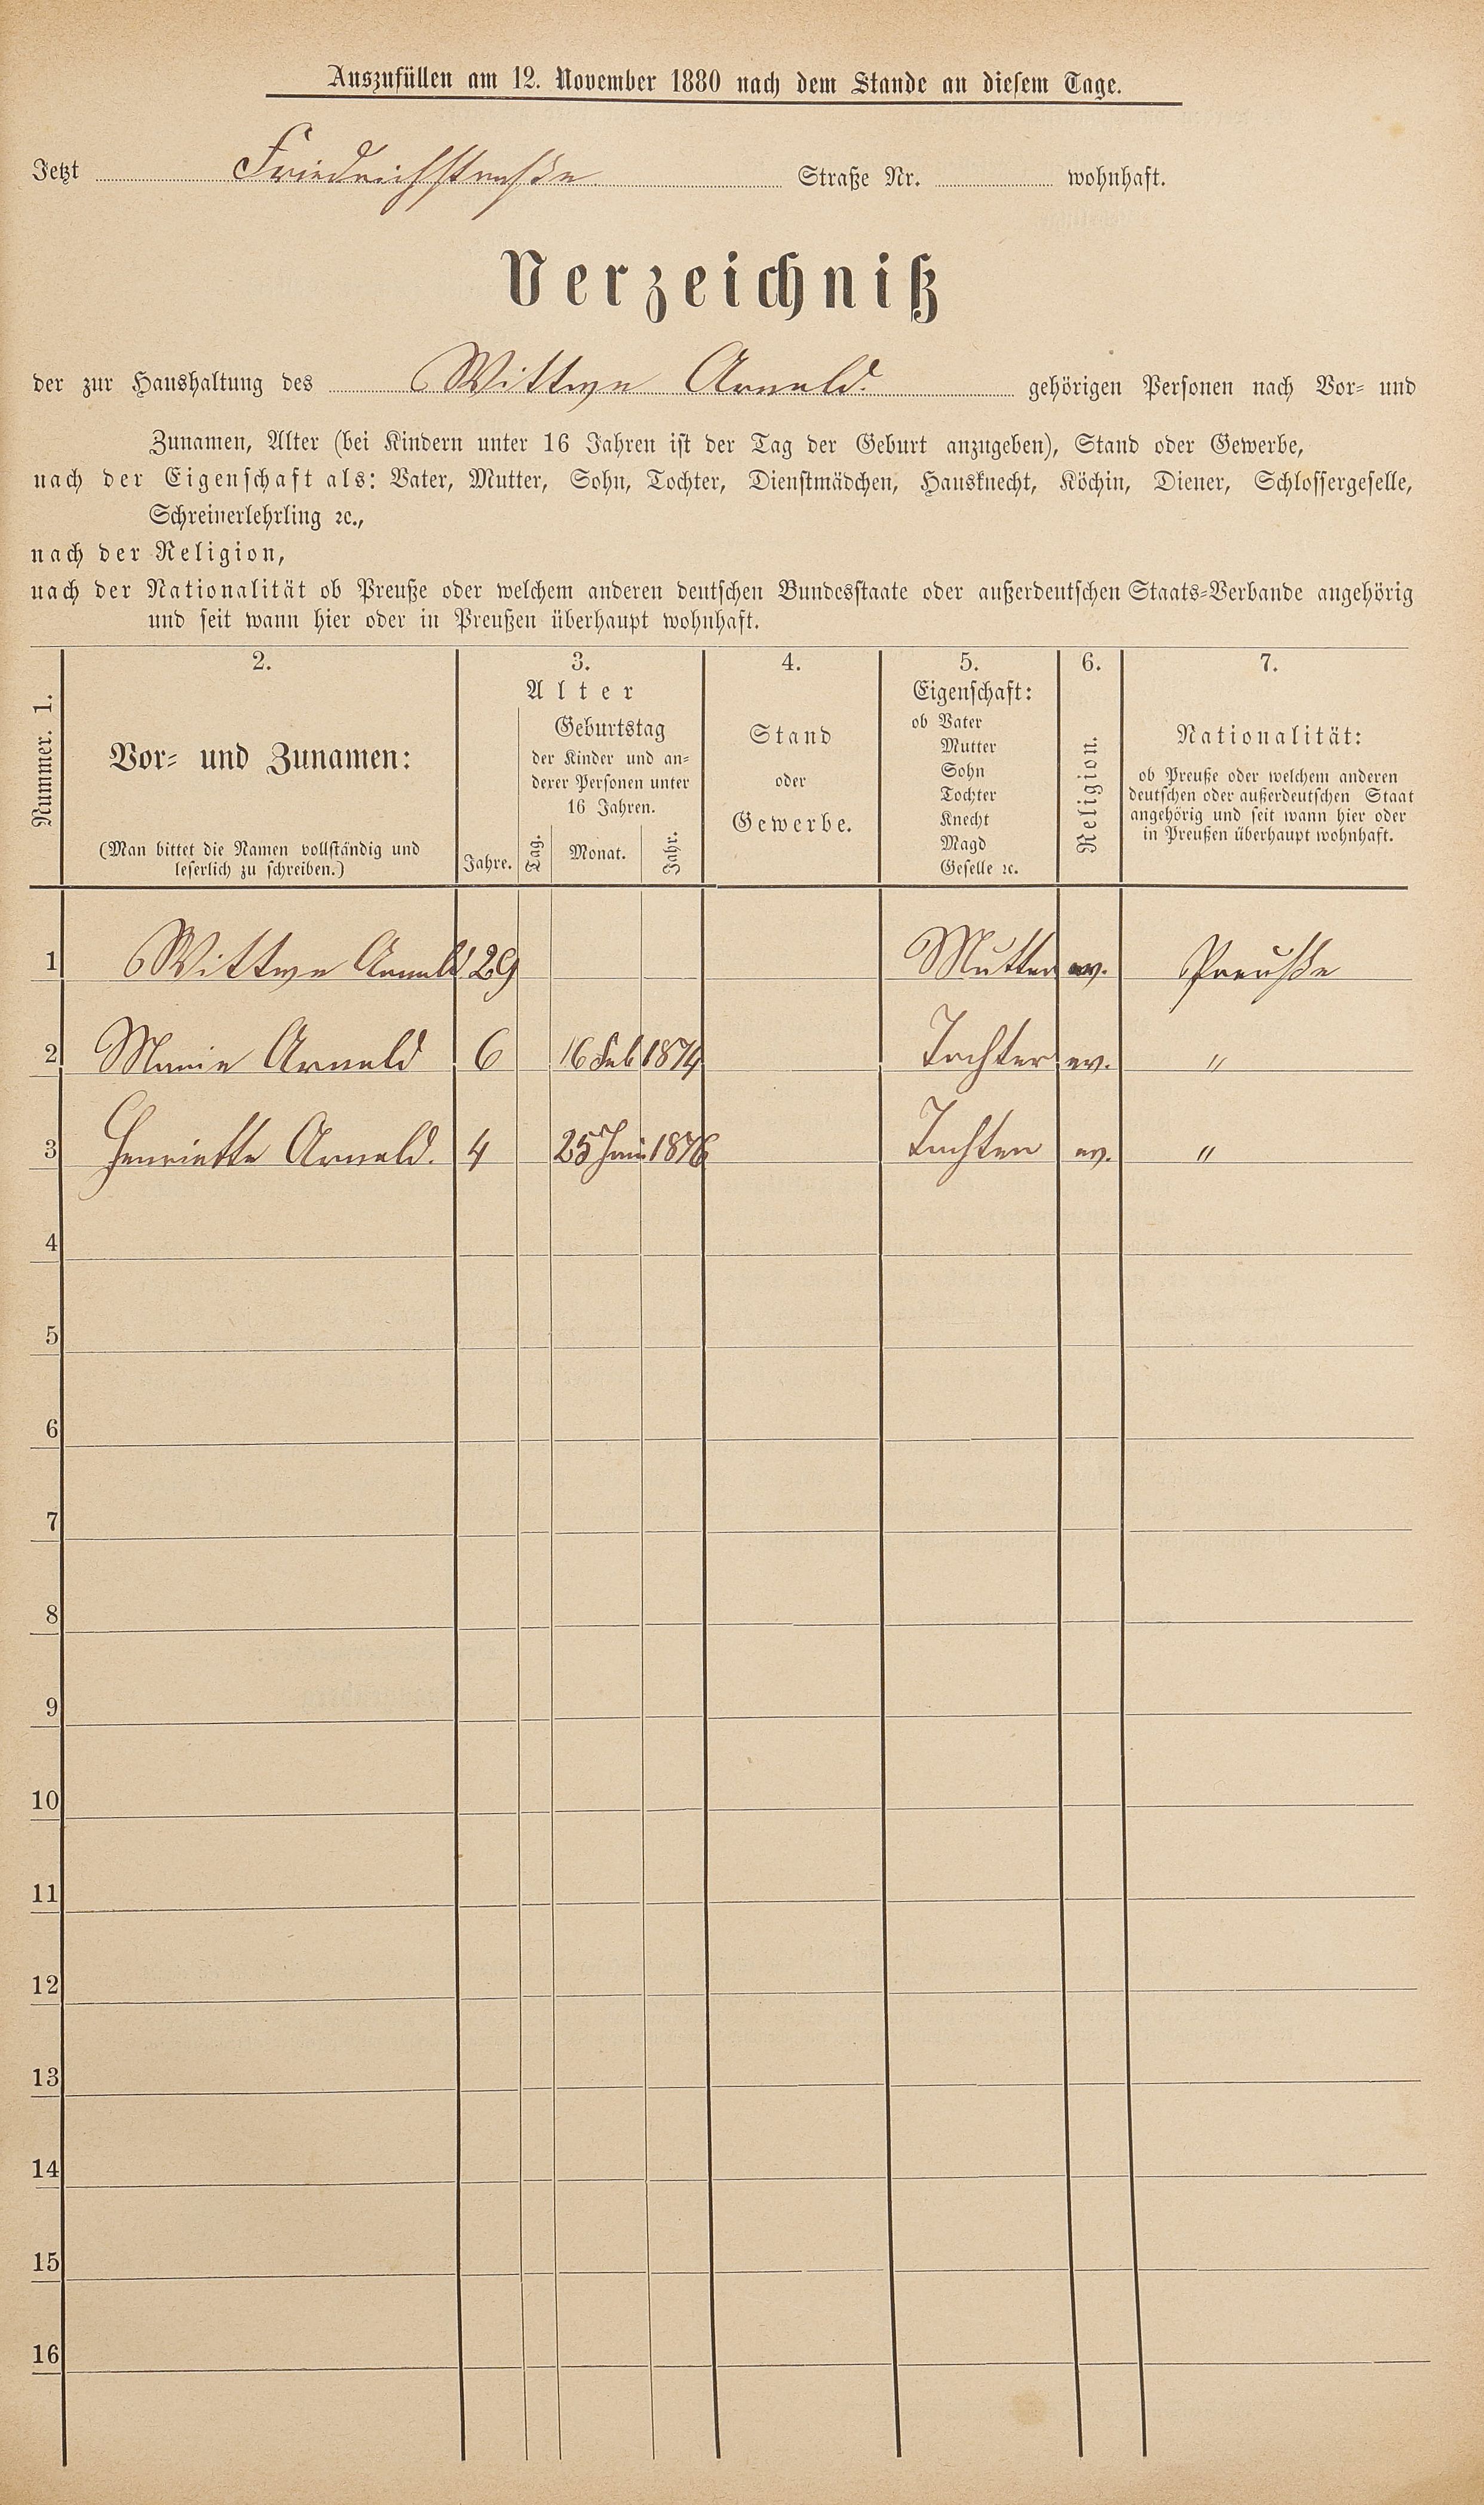 Auszufüllen am 12. November 1880 nach dem Stande an diesem Tage.
Jetzt Friedrichstraße Straße Nr. wohnhaft.
Verzeichniß
der zur Haushaltung des Wittwe Arnold. gehörigen Personen nach Vor- und
Zunamen, Alter (bei Kindern unter 16 Jahren ist der Tag der Geburt anzugeben), Stand oder Gewerbe,
nach der Eigenschaft als: Vater, Mutter, Sohn, Tochter, Dienstmädchen, Hausknecht, Köchin, Diener, Schlossergeselle,
Schreinerlehrling ꝛc.,
nach der Religion,
nach der Nationalität ob Preuße oder welchem anderen deutschen Bundesstaate oder außerdeutschen Staats-Verbande angehörig
und seit wann hier oder in Preußen überhaupt wohnhaft.
Nummer. 1.
2.
Vor- und Zunamen:
(Man bittet die Namen vollständig und
leserlich zu schreiben.)
3.
Alter
Jahre.
Geburtstag
der Kinder und an-
derer Personen unter
16 Jahren.
Tag. Monat. Jahr.
4.
Stand
oder
Gewerbe.
5.
Eigenschaft:
ob Vater
Mutter
Sohn
Tochter
Knecht
Magd
Geselle ꝛc.
6.
Religion.
7.
Nationalität:
ob Preuße oder welchem anderen
deutschen oder außerdeutschen Staat
angehörig und seit wann hier oder
in Preußen überhaupt wohnhaft.
1 Wittwe Arnold 29 Mutter ev. Preuße
2 Marie Arnold 6 16 Feb 1874 Tochter ev. "
3 Henriette Arnold. 4 25 Juni 1876 Tochter ev. "
4
5
6
7
8
9
10
11
12
13
14
15
16